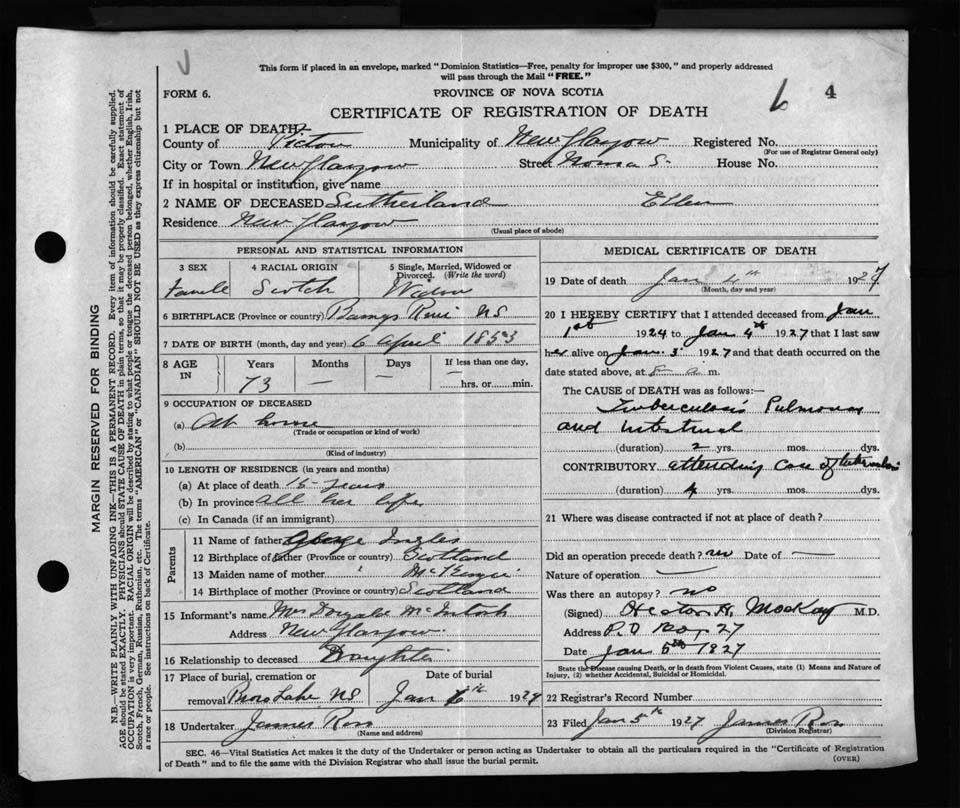 This form if placed in an envelope, marked "Dominion Statistics—Free, penalty for improper use $300," and properly addressed
will pass through the Mail "FREE."
FORM 6.
PROVINCE OF NOVA SCOTIA
6 4
CERTIFICATE OF REGISTRATION OF DEATH
1 PLACE OF DEATH
County of Pictou Municipality of New Glasgow Registered No.
(For use of Registrar General only)
City or Town New Glasgow Street House No.
If in hospital or institution, give name
2 NAME OF DECEASED Sutherland Ellen
Residence New Glasgow
(Usual place of abode)
PERSONAL AND STATISTICAL INFORMATION
3 SEX 4 RACIAL ORIGIN 5 Single, Married, Widowed or
Divorced. (Write the word)
Scotch Widow
6 BIRTHPLACE (Province or country) NS
7 DATE OF BIRTH (month, day and year) 6 April 1853
8 AGE IN Years Months Days If less than one day,
73 — — — hrs. or min.
9 OCCUPATION OF DECEASED
(a) At home
(Trade or occupation or kind of work)
(b)
(Kind of industry)
10 LENGTH OF RESIDENCE (in years and months)
(a) At place of death years
(b) In province all her life
(c) In Canada (if an immigrant)
Parents
11 Name of father George Ingles
12 Birthplace of father (Province or country) Scotland
13 Maiden name of mother McKenzie
14 Birthplace of mother (Province or country) Scotland
15 Informant's name Mrs McIntosh
Address New Glasgow
16 Relationship to deceased Daughter
17 Place of burial, cremation or Date of burial
removal Lake NS Jan 6th 1927
18 Undertaker James Ross
(Name and address)
MEDICAL CERTIFICATE OF DEATH
19 Date of death Jan 4th 1927
(Month, day and year)
20 I HEREBY CERTIFY that I attended deceased from Jan
1st 1924 to Jan 4th 1927 that I last saw
her alive on Jan. 3 1927 and that death occurred on
date stated above, at 8 a. m.
The CAUSE of DEATH was as follows:—
Tuberculosis Pulmonary
and Intestinal
(duration) 2 yrs. mos. dys.
CONTRIBUTORY attending case of tuberculosis
(duration) 4 yrs. mos. dys.
21 Where was disease contracted if not at place of death?
Did an operation precede death? no Date of —
Nature of operation —
Was there an autopsy? no
(Signed) Hector H. MacKay M.D.
Address P.O Box 27
Date Jan 5th 1927
State the Disease causing Death, or in death from Violent Causes, state (1) Means and Nature of
Injury, (2) whether Accidental, Suicidal or Homicidal.
22 Registrar's Record Number
23 Filed Jan 5th 1927 James Ross
(Division Registrar)
SEC. 46—Vital Statistics Act makes it the duty of the Undertaker or person acting as Undertaker to obtain all the particulars required in the "Certificate of Registration
of Death" and to file the same with the Division Registrar who shall issue the burial permit.
(OVER)
MARGIN RESERVED FOR BINDING
N.B.—WRITE PLAINLY WITH UNFADING INK—THIS IS A PERMANENT RECORD. Every item of information should be carefully supplied.
AGE should be stated EXACTLY. PHYSICIANS should STATE CAUSE OF DEATH in plain terms, so that it may be properly classified. Exact statement of
OCCUPATION is very important. RACIAL ORIGIN will be described by stating to what people or tongue the deceased person belonged, whether English, Irish,
Scotch, French, German, Russian, Ruthenian, etc. The terms "AMERICAN" or "CANADIAN" SHOULD NOT BE USED as they express citizenship but not
a race or people. See instructions on back of Certificate.